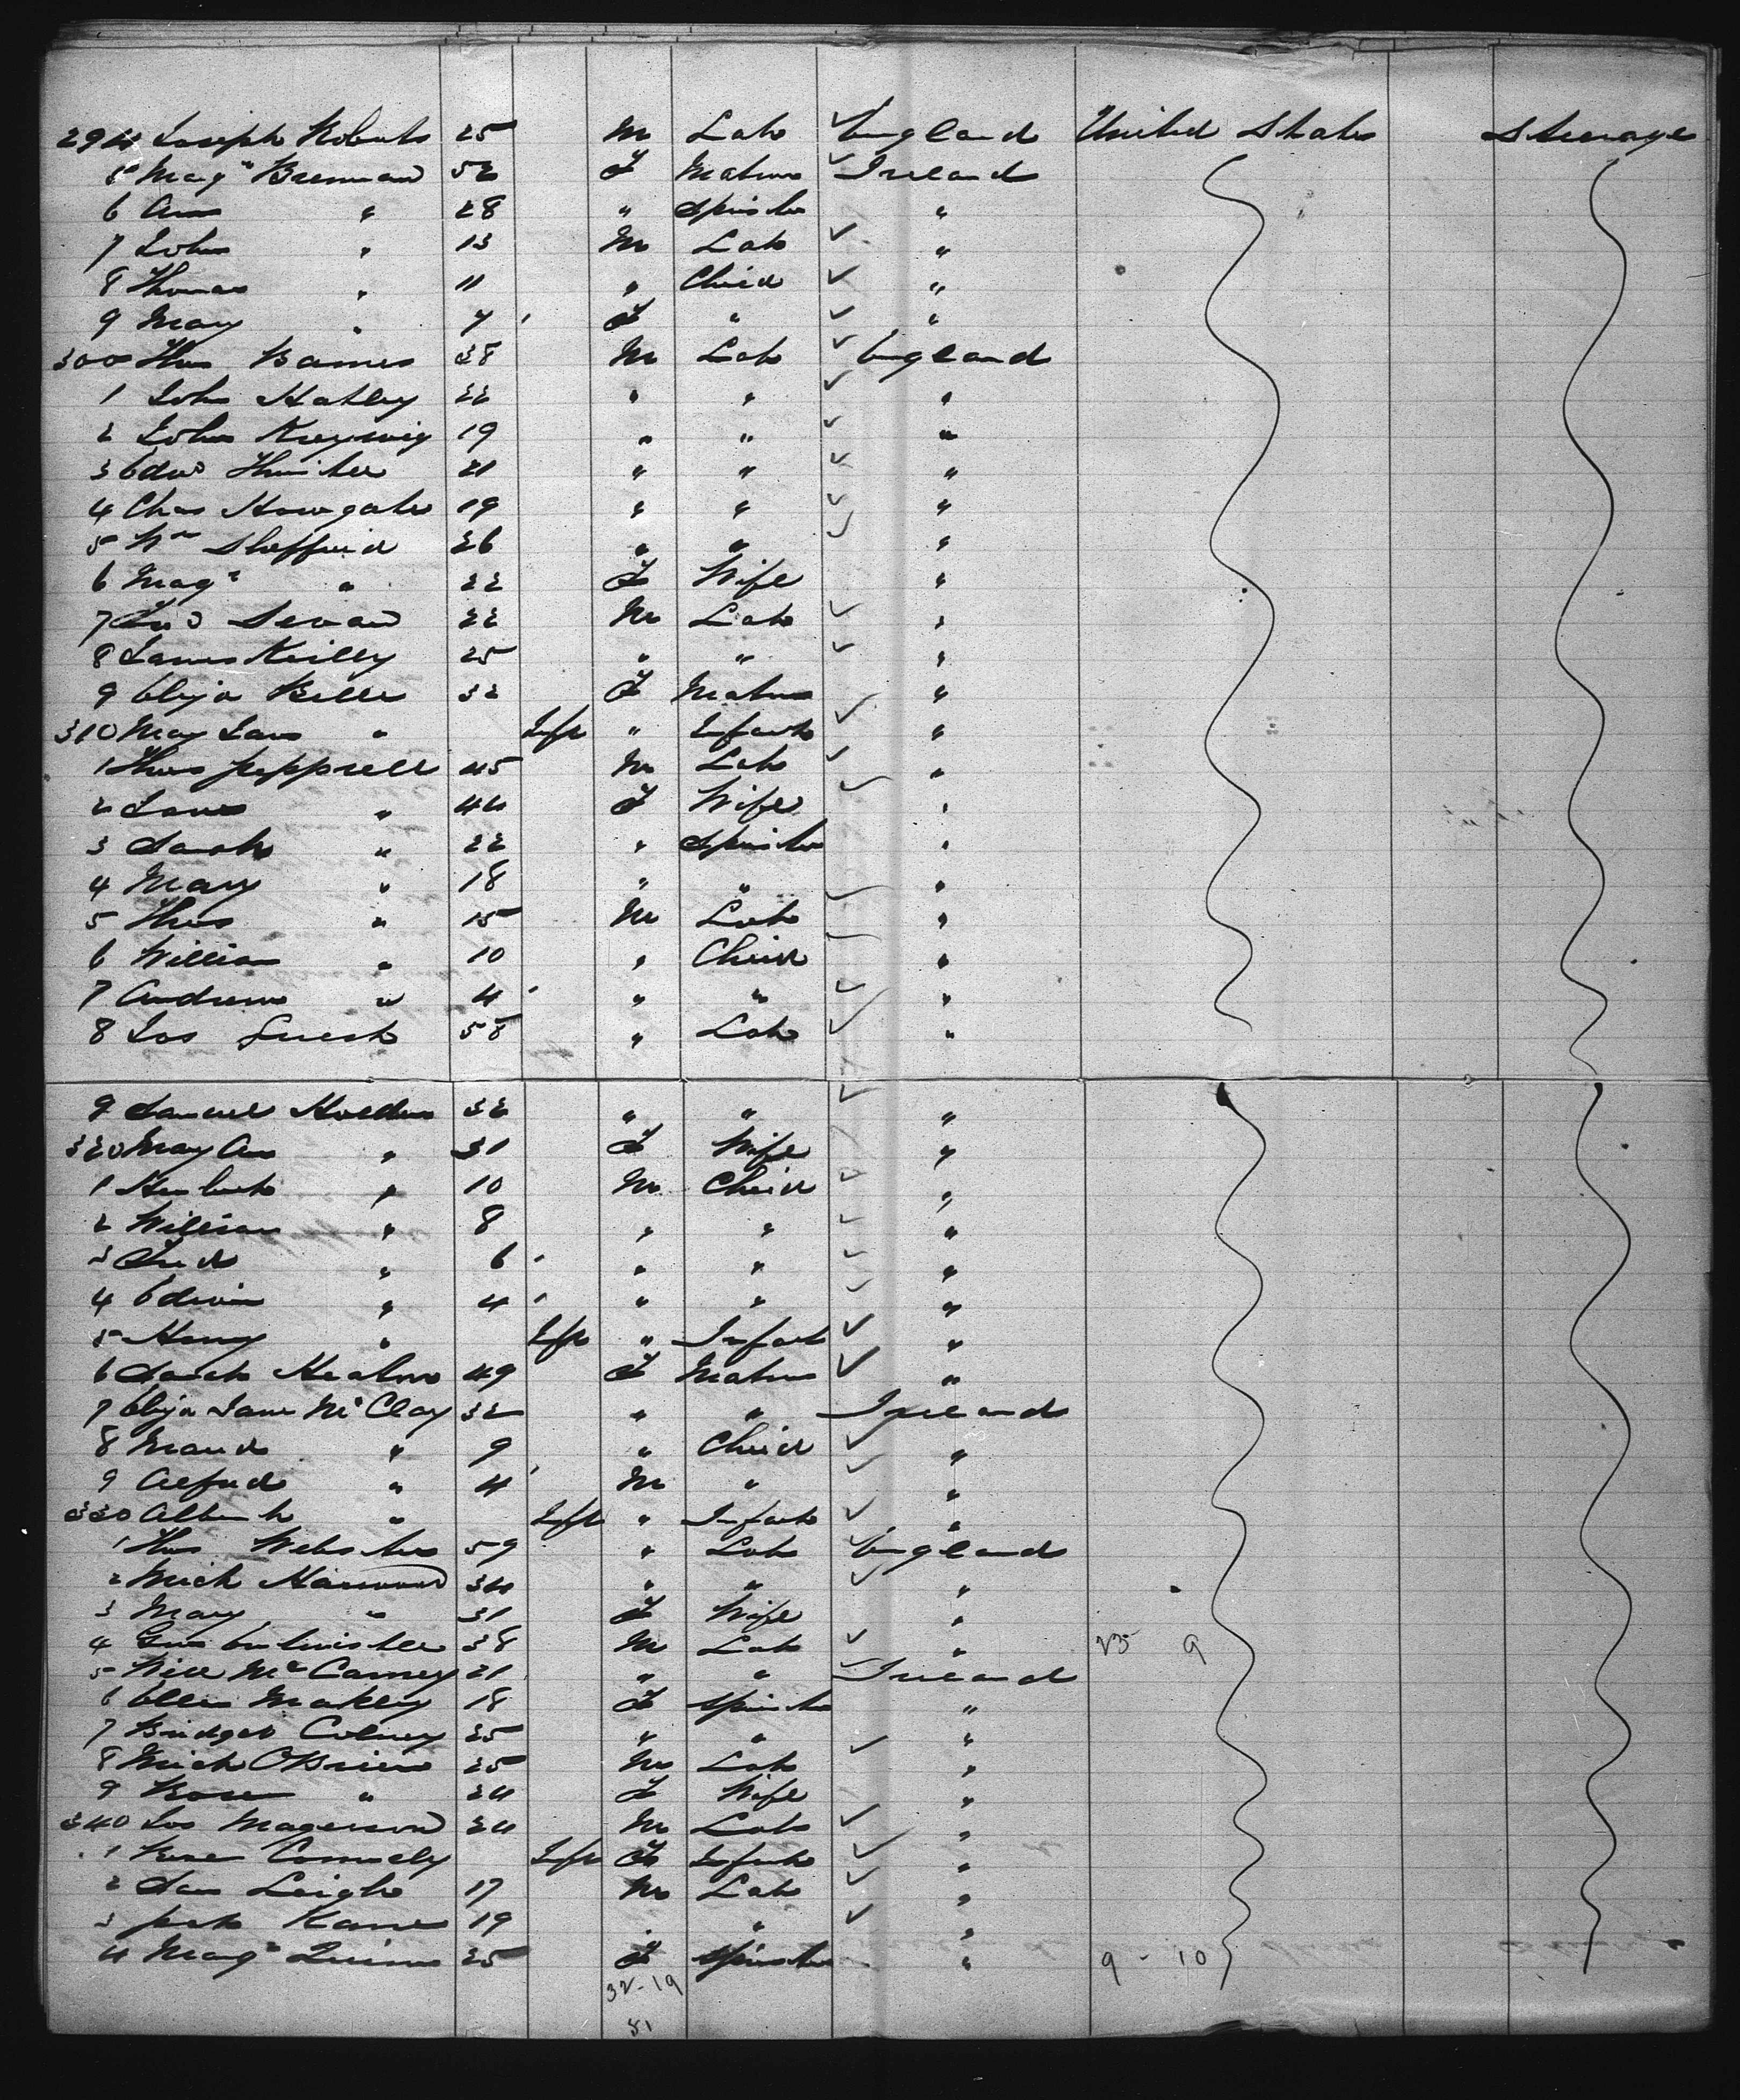 294 Joseph Roberts 25 M Lab England United States Steerage
5 Marg^t Brennan 52 F Matron Ireland
6 Ann " 28 " Spinster "
7 John " 13 M Lab "
8 Thomas " 11 " Child "
9 Mary " 7 F " "
300 Thos Barnes 38 M Lab England
1 John Hatley 22 " " "
2 John 19 " " "
3 Edwd 21 " " "
4 Chas Howgate 19 " " "
5 Wm Sheffield 26 " " "
6 Mag^t " 22 F Wife "
7 22 M Lab "
8 James Reilly 25 " " "
9 Eliza Bell 32 F Matron "
310 Mary Jane " Inft " Infant "
1 Thos Pepprell 45 M Lab "
2 Jane " 44 F Wife "
3 Sarah " 22 " Spinster "
4 Mary " 18 " " "
5 Thos " 15 M Lab "
6 William " 10 " Child "
7 Andrew " 4 " " "
8 Jos Guest 58 " Lab "
9 Samuel Holden 32 " " "
320 Mary Ann " 31 F Wife "
1 Herbert " 10 M Child "
2 William " 8 " " "
3 Fred " 6 " " "
4 Edwin " 4 " " "
5 Henry " Inft " Infant "
6 Sarah 49 F Matron "
7 Eliza Jane McClay 32 " " Ireland
8 Maud " 9 " Child "
9 Alfred " 4 M " "
330 Albert " Inft " Infant "
1 Thos Webster 59 " Lab England
2 Mich Harwood 34 " " "
3 Mary " 31 F Wife "
4 Entwistle 38 M Lab " 25 9
5 Will McCamey 21 " " Ireland
6 Ellen Makley 18 F Spinster "
7 Bridget 25 " " "
8 Mich OBrien 25 M Lab "
9 Rose " 24 F Wife "
340 Jos Magerson 24 M Lab "
1 Conncely Inft F Infant "
2 Leigh 17 M Lab "
3 Kane 19 " " "
4 Mag^t Quinn 25 F Spinster " 9 - 10
32-19
51